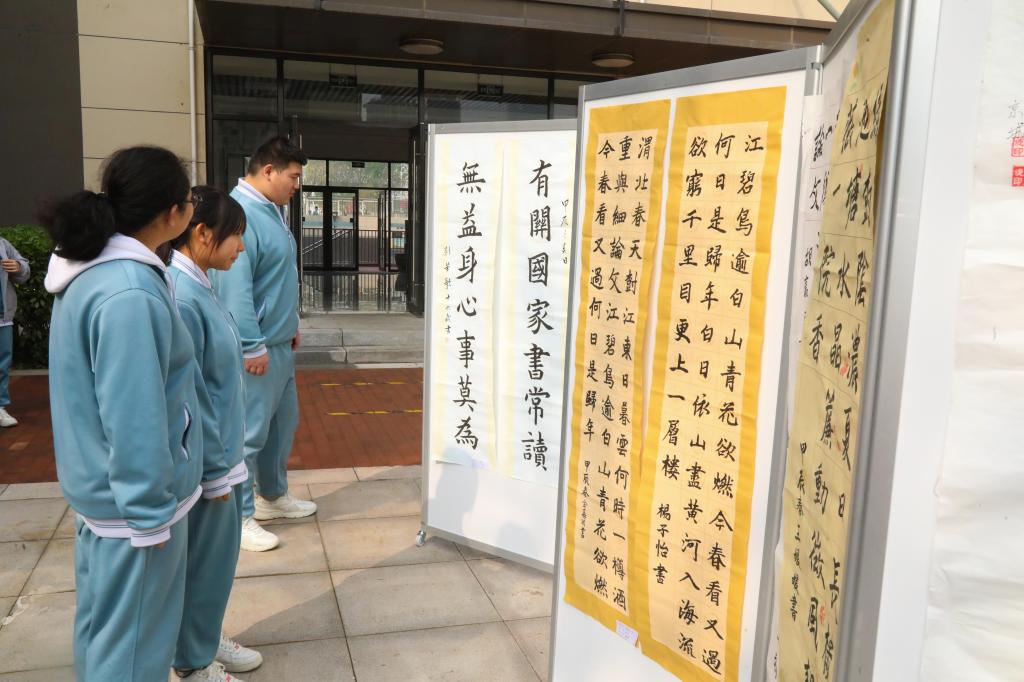 有關國家書常讀
甲辰春日
無益身心事莫為
江碧鳥逾白山青花欲燃今春看又過
何日是歸年白日依山盡黃河入海流
欲窮千里目更上一層樓
楊子怡書
渭北春天對江東日暮雲何時一樽酒
重與細論文江碧鳥逾白山青花欲燃
今春看又過何日是歸年
甲辰春
樹陰濃夏日長樓
塘水晶簾動微風起
薇一院香
甲辰春王楊楷書
論文